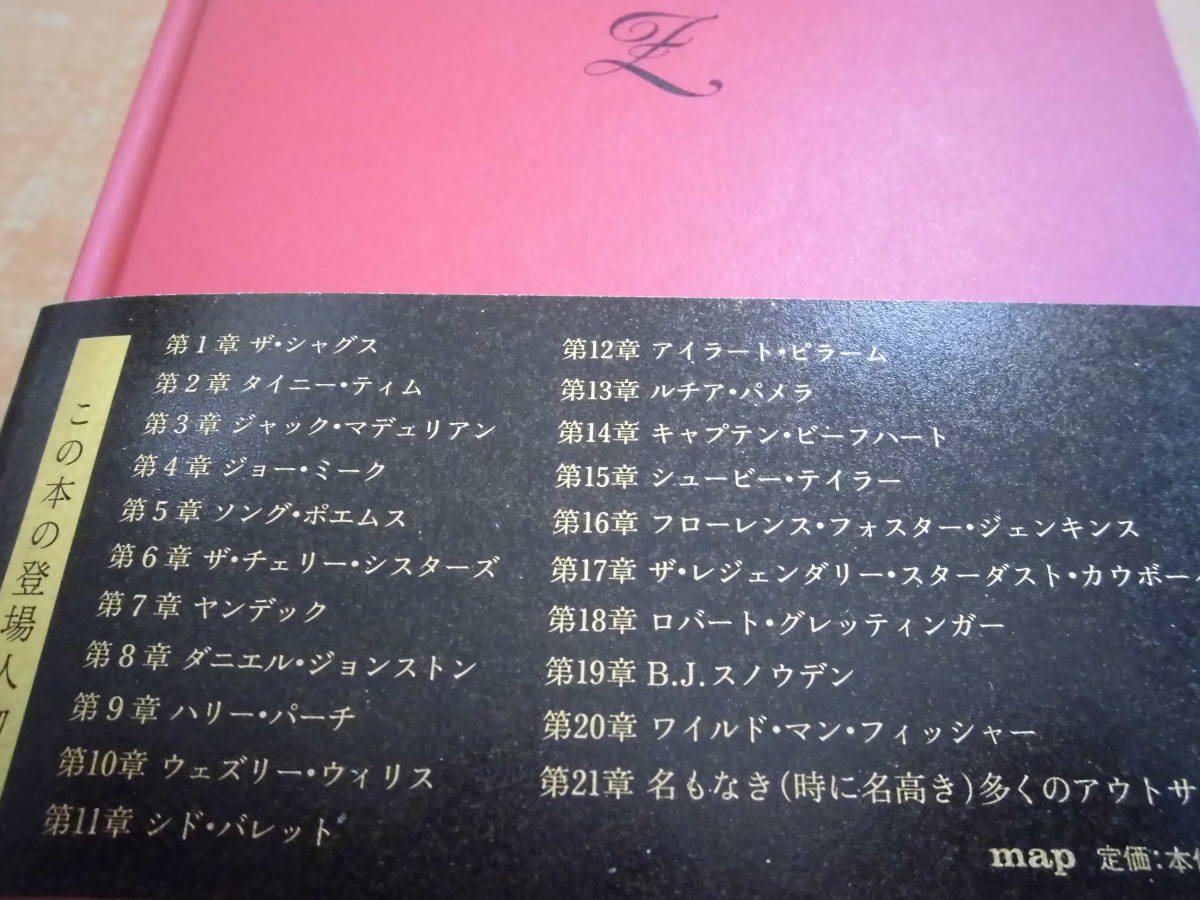 Z
この本の登場人
第1章 ザ・シャグス
第2章 タイニー・ティム
第3章 ジャック・マデュリアン
第4章 ジョー・ミーク
第5章 ソング・ポエムス
第6章 ザ・チェリー・シスターズ
第7章 ヤンデック
第8章 ダニエル・ジョンストン
第9章 ハリー・パーチ
第10章 ウェズリー・ウィリス
第11章 シド・バレット
第12章 アイラート・ピラーム
第13章 ルチア・パメラ
第14章 キャプテン・ビーフハート
第15章 シュービー・テイラー
第16章 フローレンス・フォスター・ジェンキンス
第17章 ザ・レジェンダリー・スターダスト・カウボー
第18章 ロバート・グレッティンガー
第19章 B.J.スノウデン
第20章 ワイルド・マン・フィッシャー
第21章 名もなき(時に名高き)多くのアウトサ
map 定価:本